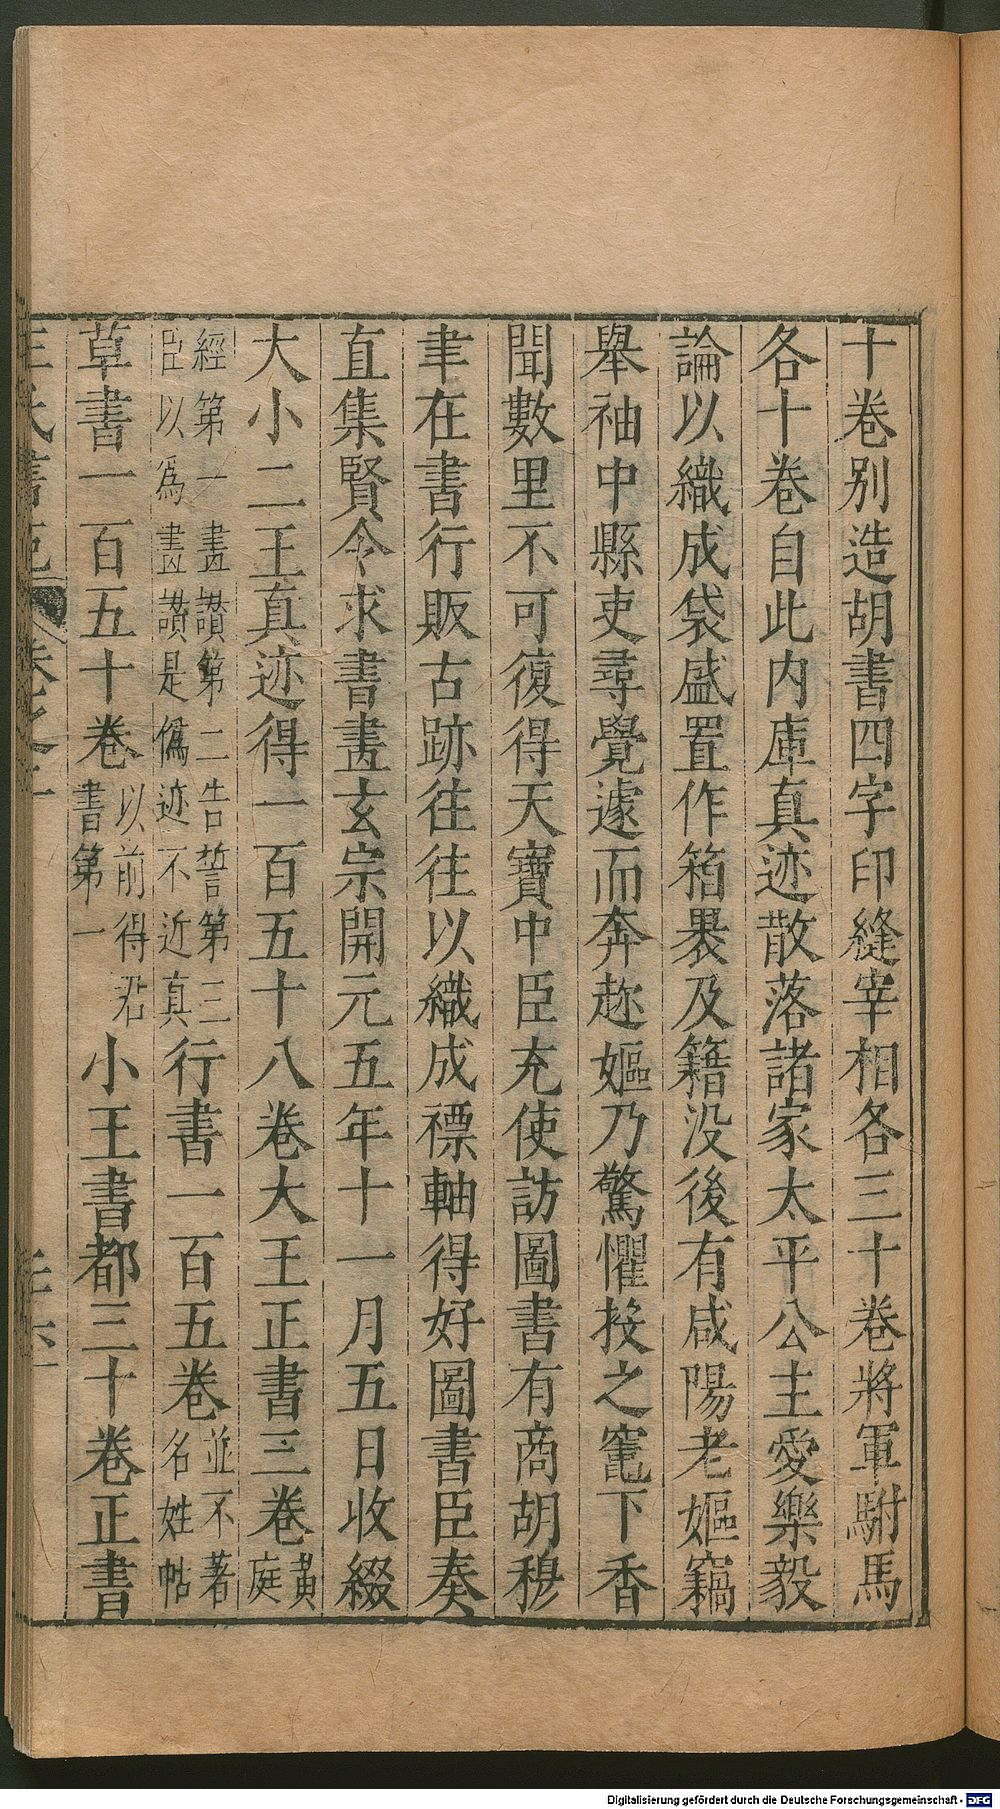 十卷別造胡書四字印縫宰相各三十卷將軍駙馬
各十卷自此内庫真迹散落諸家太平公主愛樂毅
論以織成袋盛置作箱褁及籍没後有咸陽老嫗竊
舉袖中縣吏尋覺遽而奔趂嫗乃驚懼投之竈下香
聞數里不可復得天寶中臣充使訪圖書有商胡穆
聿在書行販古跡往往以織成褾軸得好圖書臣奏
直集賢令求書畫玄宗開元五年十一月五日收綴
大小二王真迹得一百五十八卷大王正書三卷黃庭
經第一畫讃第二告誓第三臣以爲畫讃是僞迹不近真行書一百五卷並不著名姓帖
草書一百五十卷以前得君書第一小王書都三十卷正書
王氏書苑 卷之
Digitalisierung gefördert durch die Deutsche Forschungsgemeinschaft - DFG